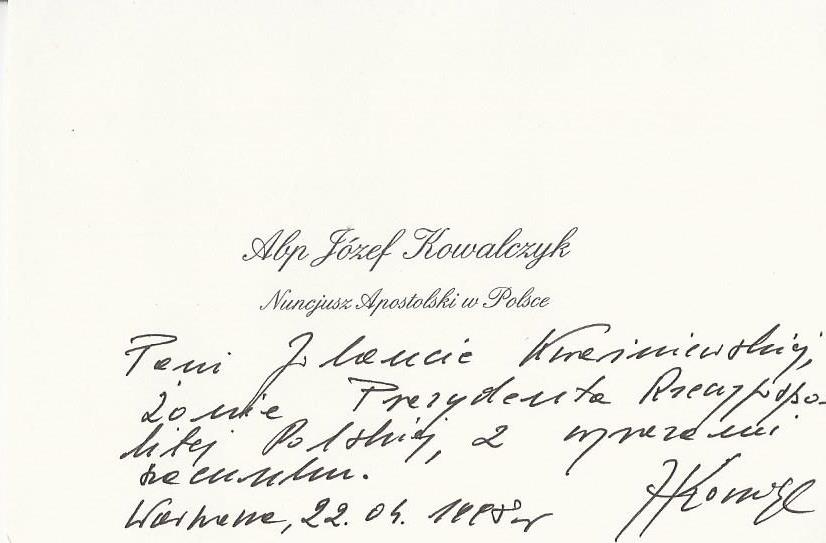 Abp Józef Kowalczyk
Nuncjusz Apostolski w Polsce
Pani Jolancie Kwaśniewskiej,
żonie Prezydenta Rzeczypospo-
litej Polskiej, z wyrazami
szacunku.
Warszawa, 22.04.1998 r
JKowalcz